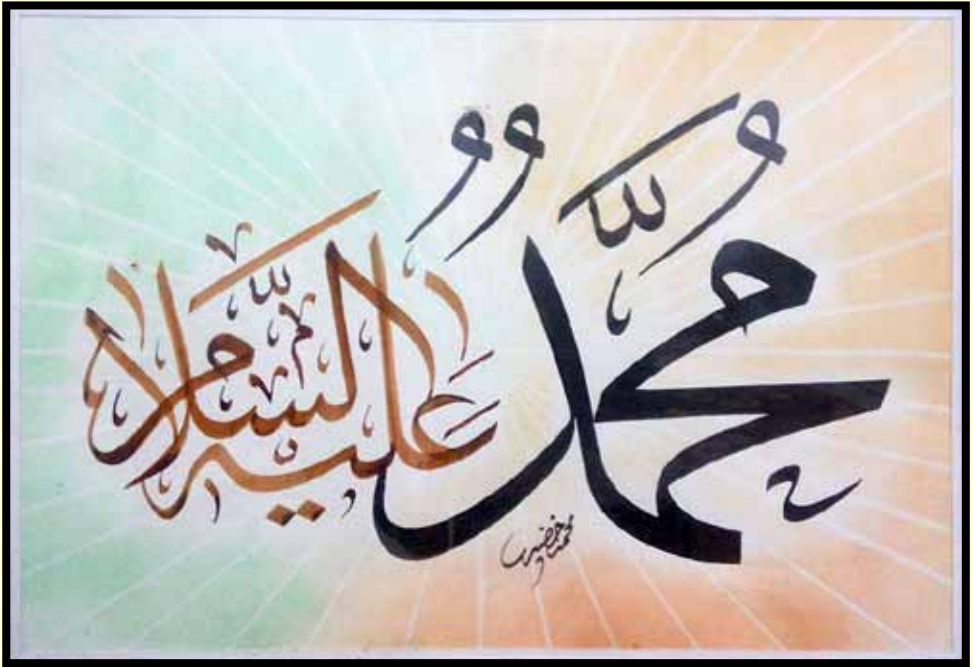 مُحَمَّدٌ عليه السَّلام